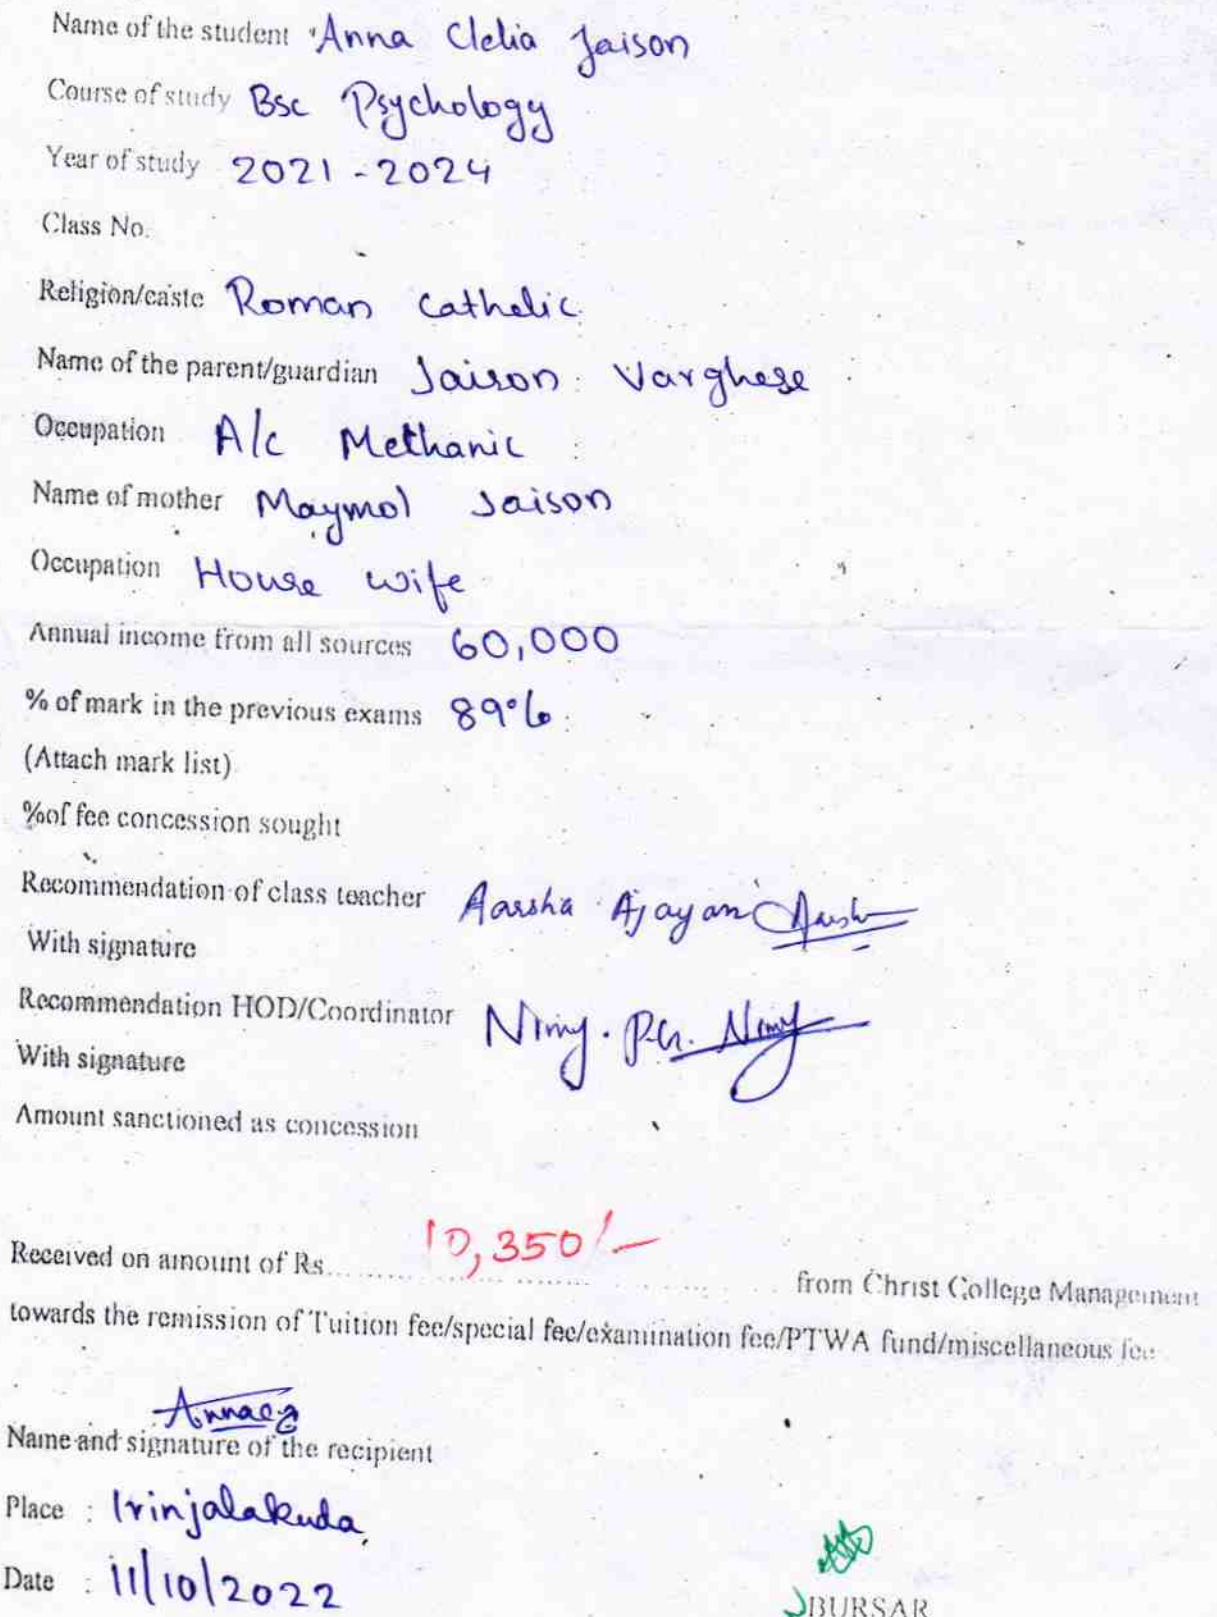 Name of the student Anna Clelia Jaison
Course of study Bsc Psychology
Year of study 2021 - 2024
Class No.
Religion/caste Roman Cathelic
Name of the parent/guardian Jaison Varghese
Occupation A/c Methanic
Name of mother Maymol Jaison
Occupation House wife
Annual income from all sources 60,000
% of mark in the previous exams 89%
(Attach mark list)
%of fee concession sought
Recommendation of class teacher Aarsha Ajayan Aarsha
With signature
Recommendation HOD/Coordinator Nimy. P.G. Nimy
With signature
Amount sanctioned as concession
Received on amount of Rs. 10,350/- from Christ College Management
towards the remission of Tuition fee/special fee/examination fee/PTWA fund/miscellaneous fee
Name and signature of the recipient
Place : Irinjalakuda,
Date : 11/10/2022
BURSAR